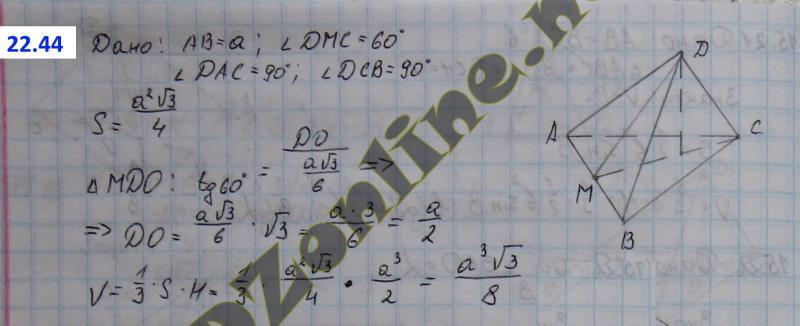 22.44
Дано: AB=a; ∠DMC=60°
∠DAC=90°; ∠DCB=90°
S = a²√3/4
△MDO: tg60° = DO/(a√3/6) =>
=> DO = a√3/6 · √3 = a·3/6 = a/2
V = 1/3 · S · H = 1/3 · a²√3/4 · a³/2 = a³√3/8
D
A
C
M
B
DZonline.n